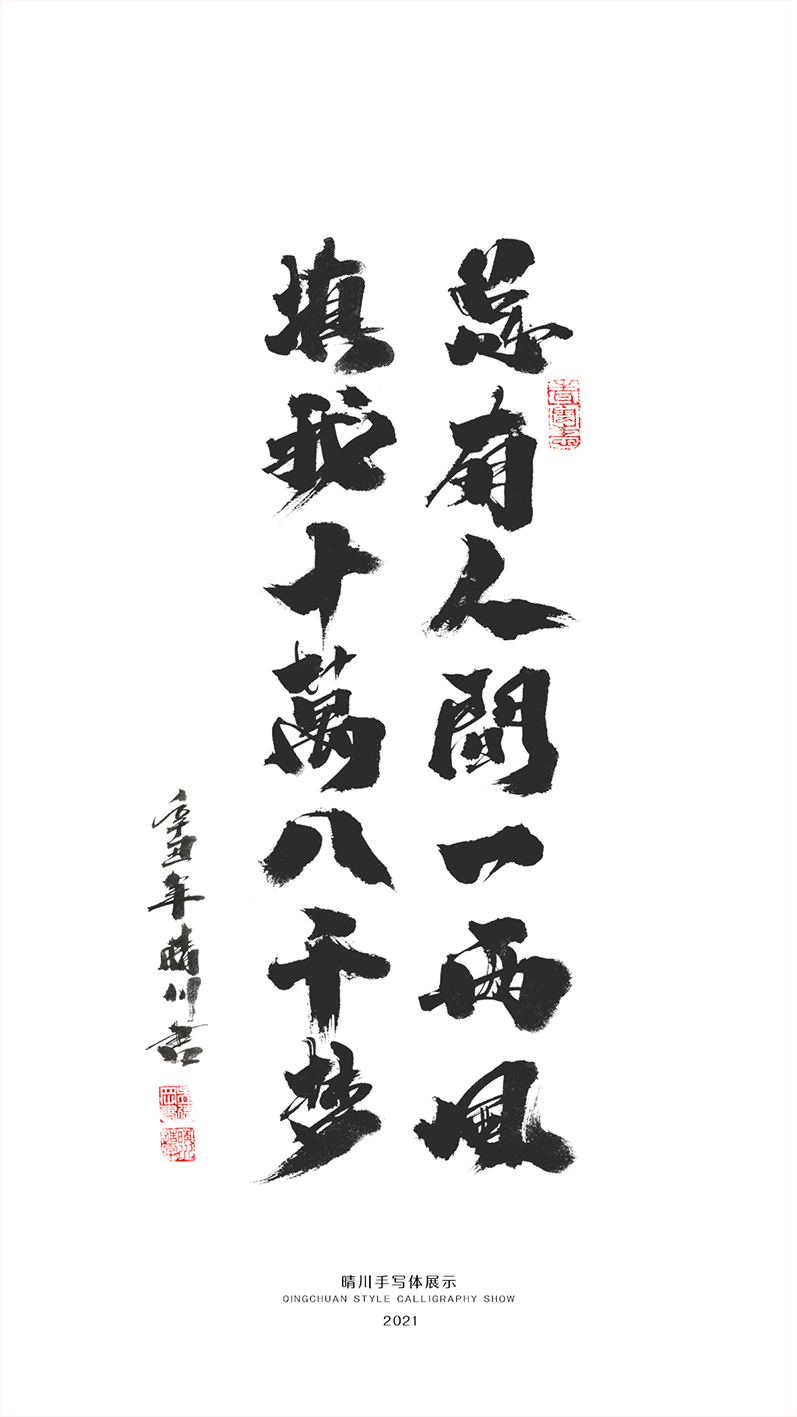 总有人間一两風
填我十萬八千梦
辛丑年晴川書
晴川手写体展示
QINGCHUAN STYLE CALLIGRAPHY SHOW
2021